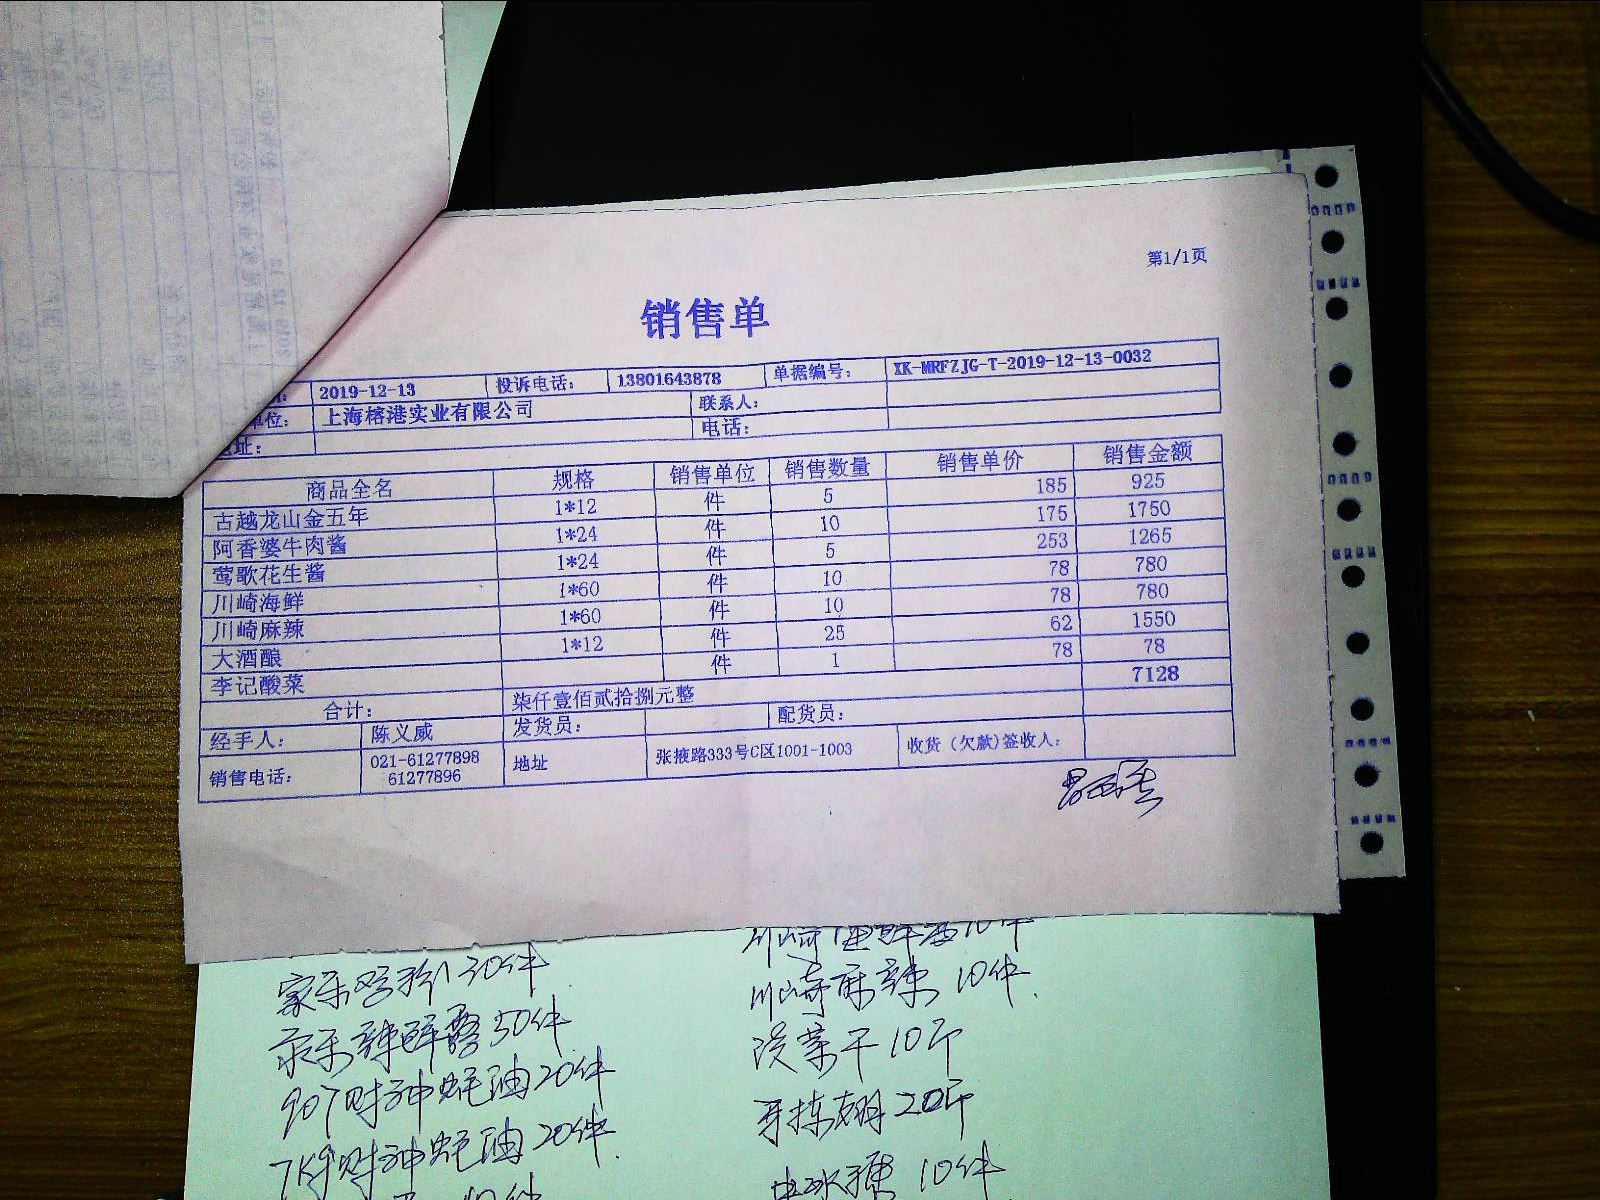 第1/1页
销售单
2019-12-13 投诉电话: 13801643878 单据编号: XK-MRFZJG-T-2019-12-13-0032
单位: 上海榕港实业有限公司 联系人:
址: 电话:
商品全名 规格 销售单位 销售数量 销售单价 销售金额
古越龙山金五年 1*12 件 5 185 925
阿香婆牛肉酱 1*24 件 10 175 1750
莺歌花生酱 1*24 件 5 253 1265
川崎海鲜 1*60 件 10 78 780
川崎麻辣 1*60 件 10 78 780
大酒酿 1*12 件 25 62 1550
李记酸菜 件 1 78 78
合计: 柒仟壹佰贰拾捌元整 7128
经手人: 陈义威 发货员: 配货员:
销售电话: 021-61277898 61277896 地址 张掖路333号C区1001-1003 收货(欠款)签收人:
家乐鸡粉 30件
家乐辣鲜露 50件
907财神蚝油 20件
财神蚝油 20件
10件
川崎麻辣 10件.
淡菜干 10斤
20斤
冰糖 10件